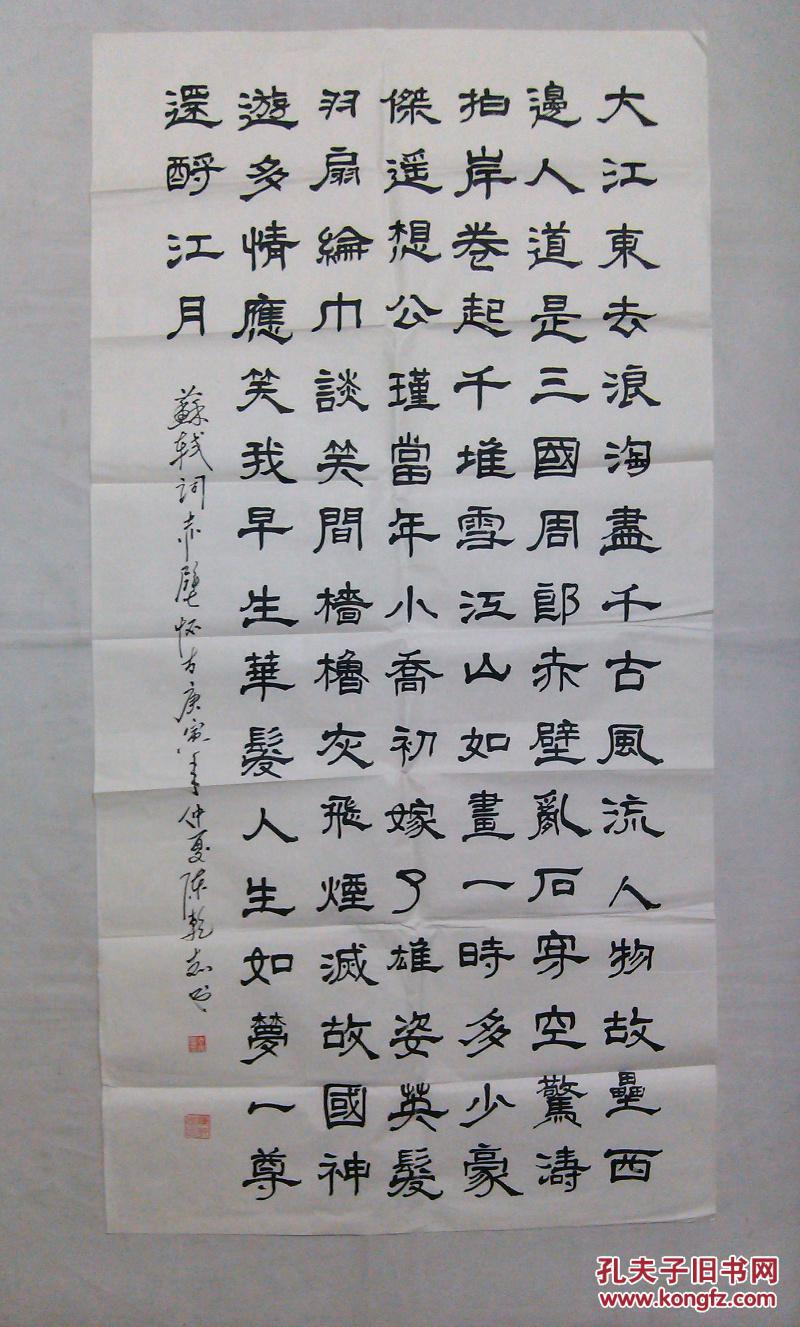 大江東去浪淘盡千古風流人物故壘西
邊人道是三國周郎赤壁亂石穿空驚濤
拍岸卷起千堆雪江山如畫一時多少豪
傑遥想公瑾當年小喬初嫁了雄姿英髮
羽扇綸巾談笑間檣櫓灰飛煙滅故國神
遊多情應笑我早生華髮人生如夢一尊
還酹江月
蘇軾词赤壁怀古庚寅年仲夏陈乾志书
孔夫子旧书网
www.kongfz.com